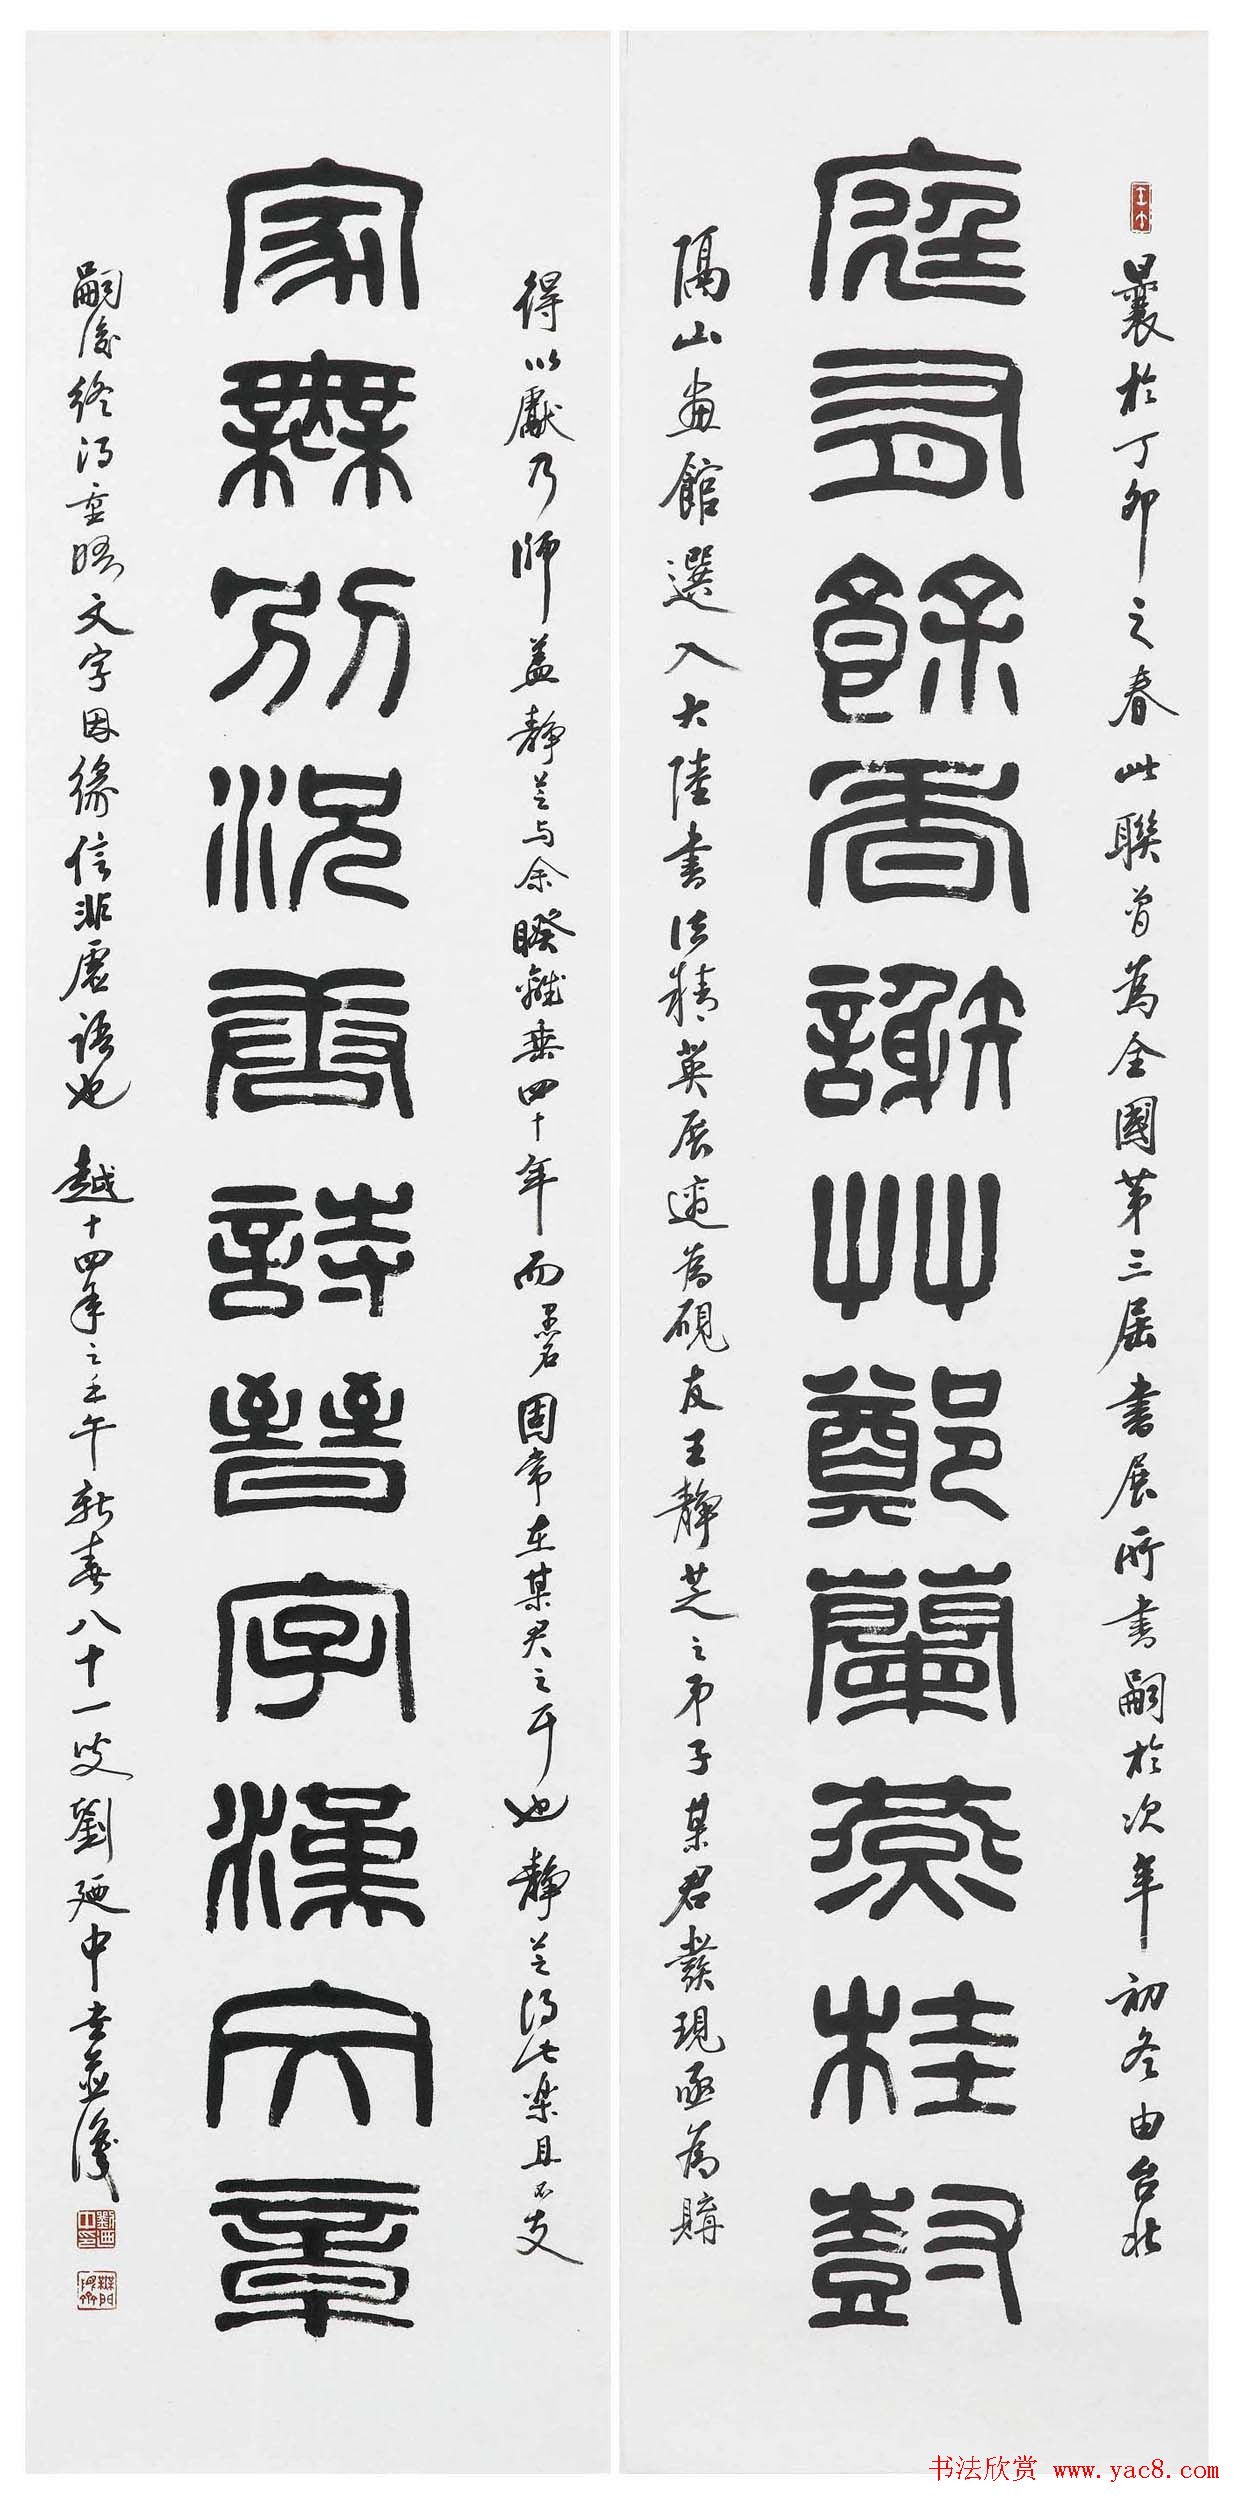 庭有餘香謝艸鄭蘭燕桂尌
曩於丁卯之春此聯曾為全國第三屆書展所書嗣於次年初冬由台北
隔山畫館選入大陸書法精英展適為硯友王靜芝之弟子某君發現亟為購
家無別況唐詩晉字漢文章
得以獻乃師蓋靜芝与余睽離垂四十年而署名固常在某君之耳也靜芝得此樂且不支
嗣後終得重晤文字因緣信非虛語也越十四年之壬午新春八十一叟劉廼中書並識
书法欣赏 www.yac8.com